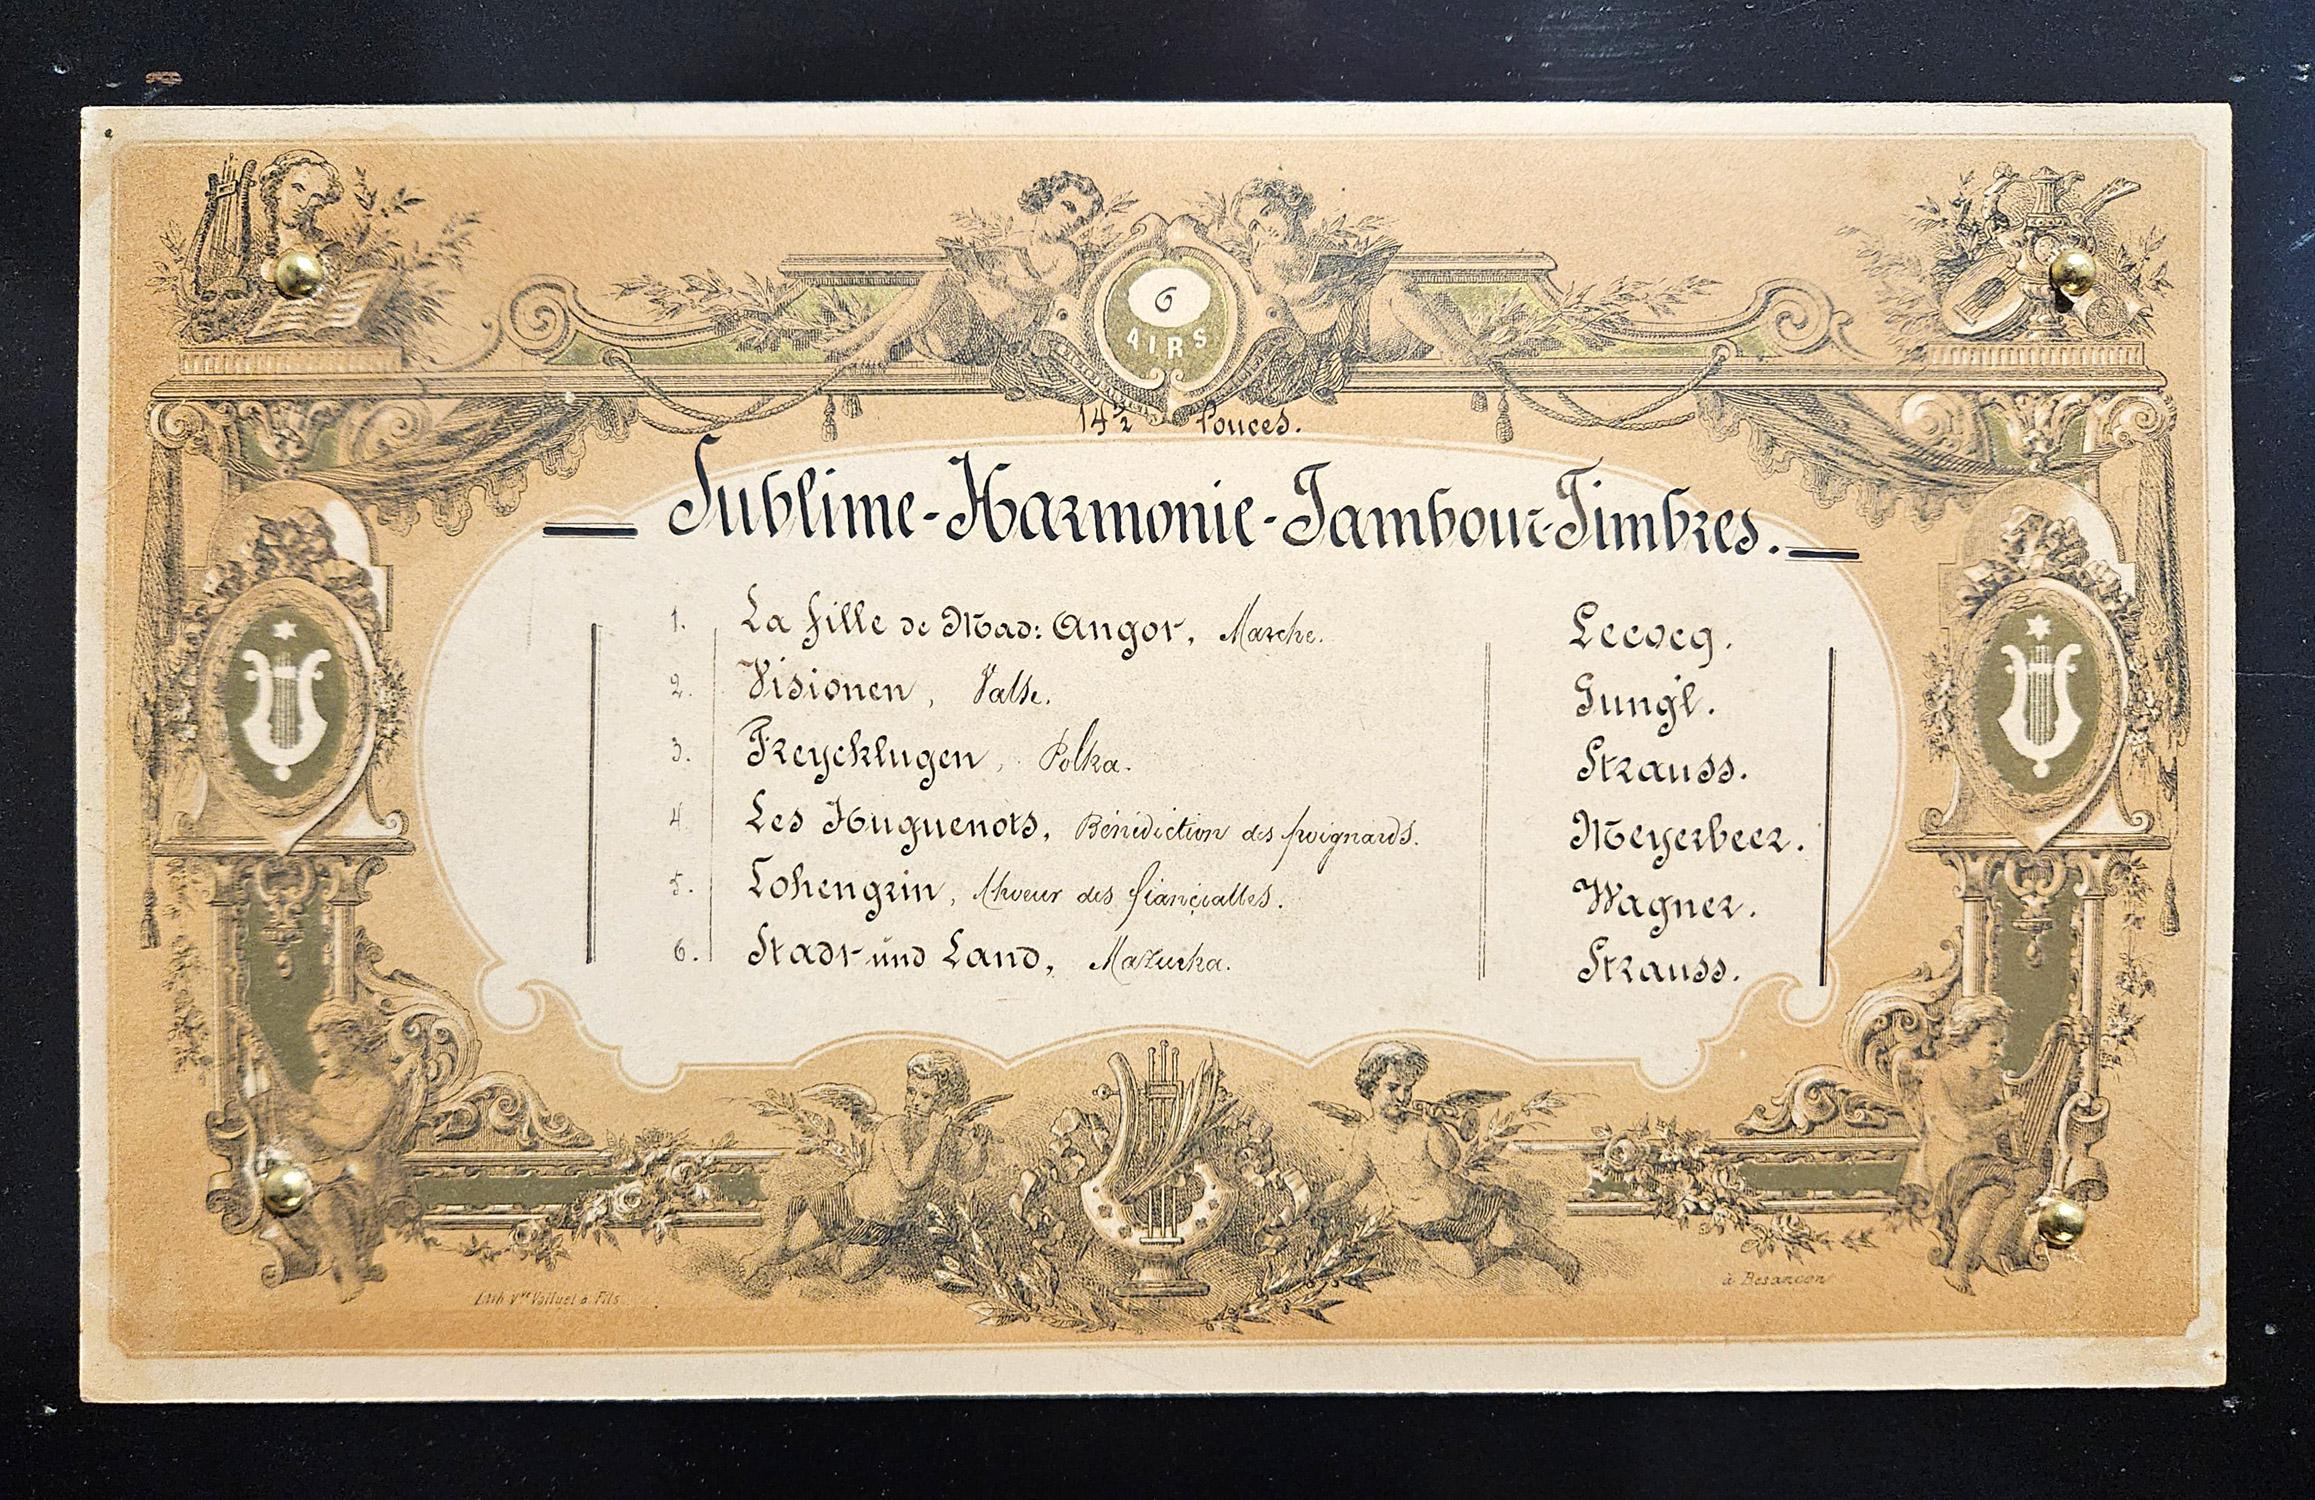 6
AIRS
14 ½ Pouces.
Sublime-Harmonie-Tambour-Timbres.
1. La fille de Mad: Angot, Marche. Lecocq.
2. Visionen, Valse. Gungl.
3. Freyeklugen, Polka. Strauss.
4. Les Huguenots, Bénédiction des poignards. Meyerbeer.
5. Lohengrin, Choeur des fiançialles. Wagner.
6. Stadt und Land, Mazurka. Strauss.
Lith Vve Valluet & Fils
à Besancon